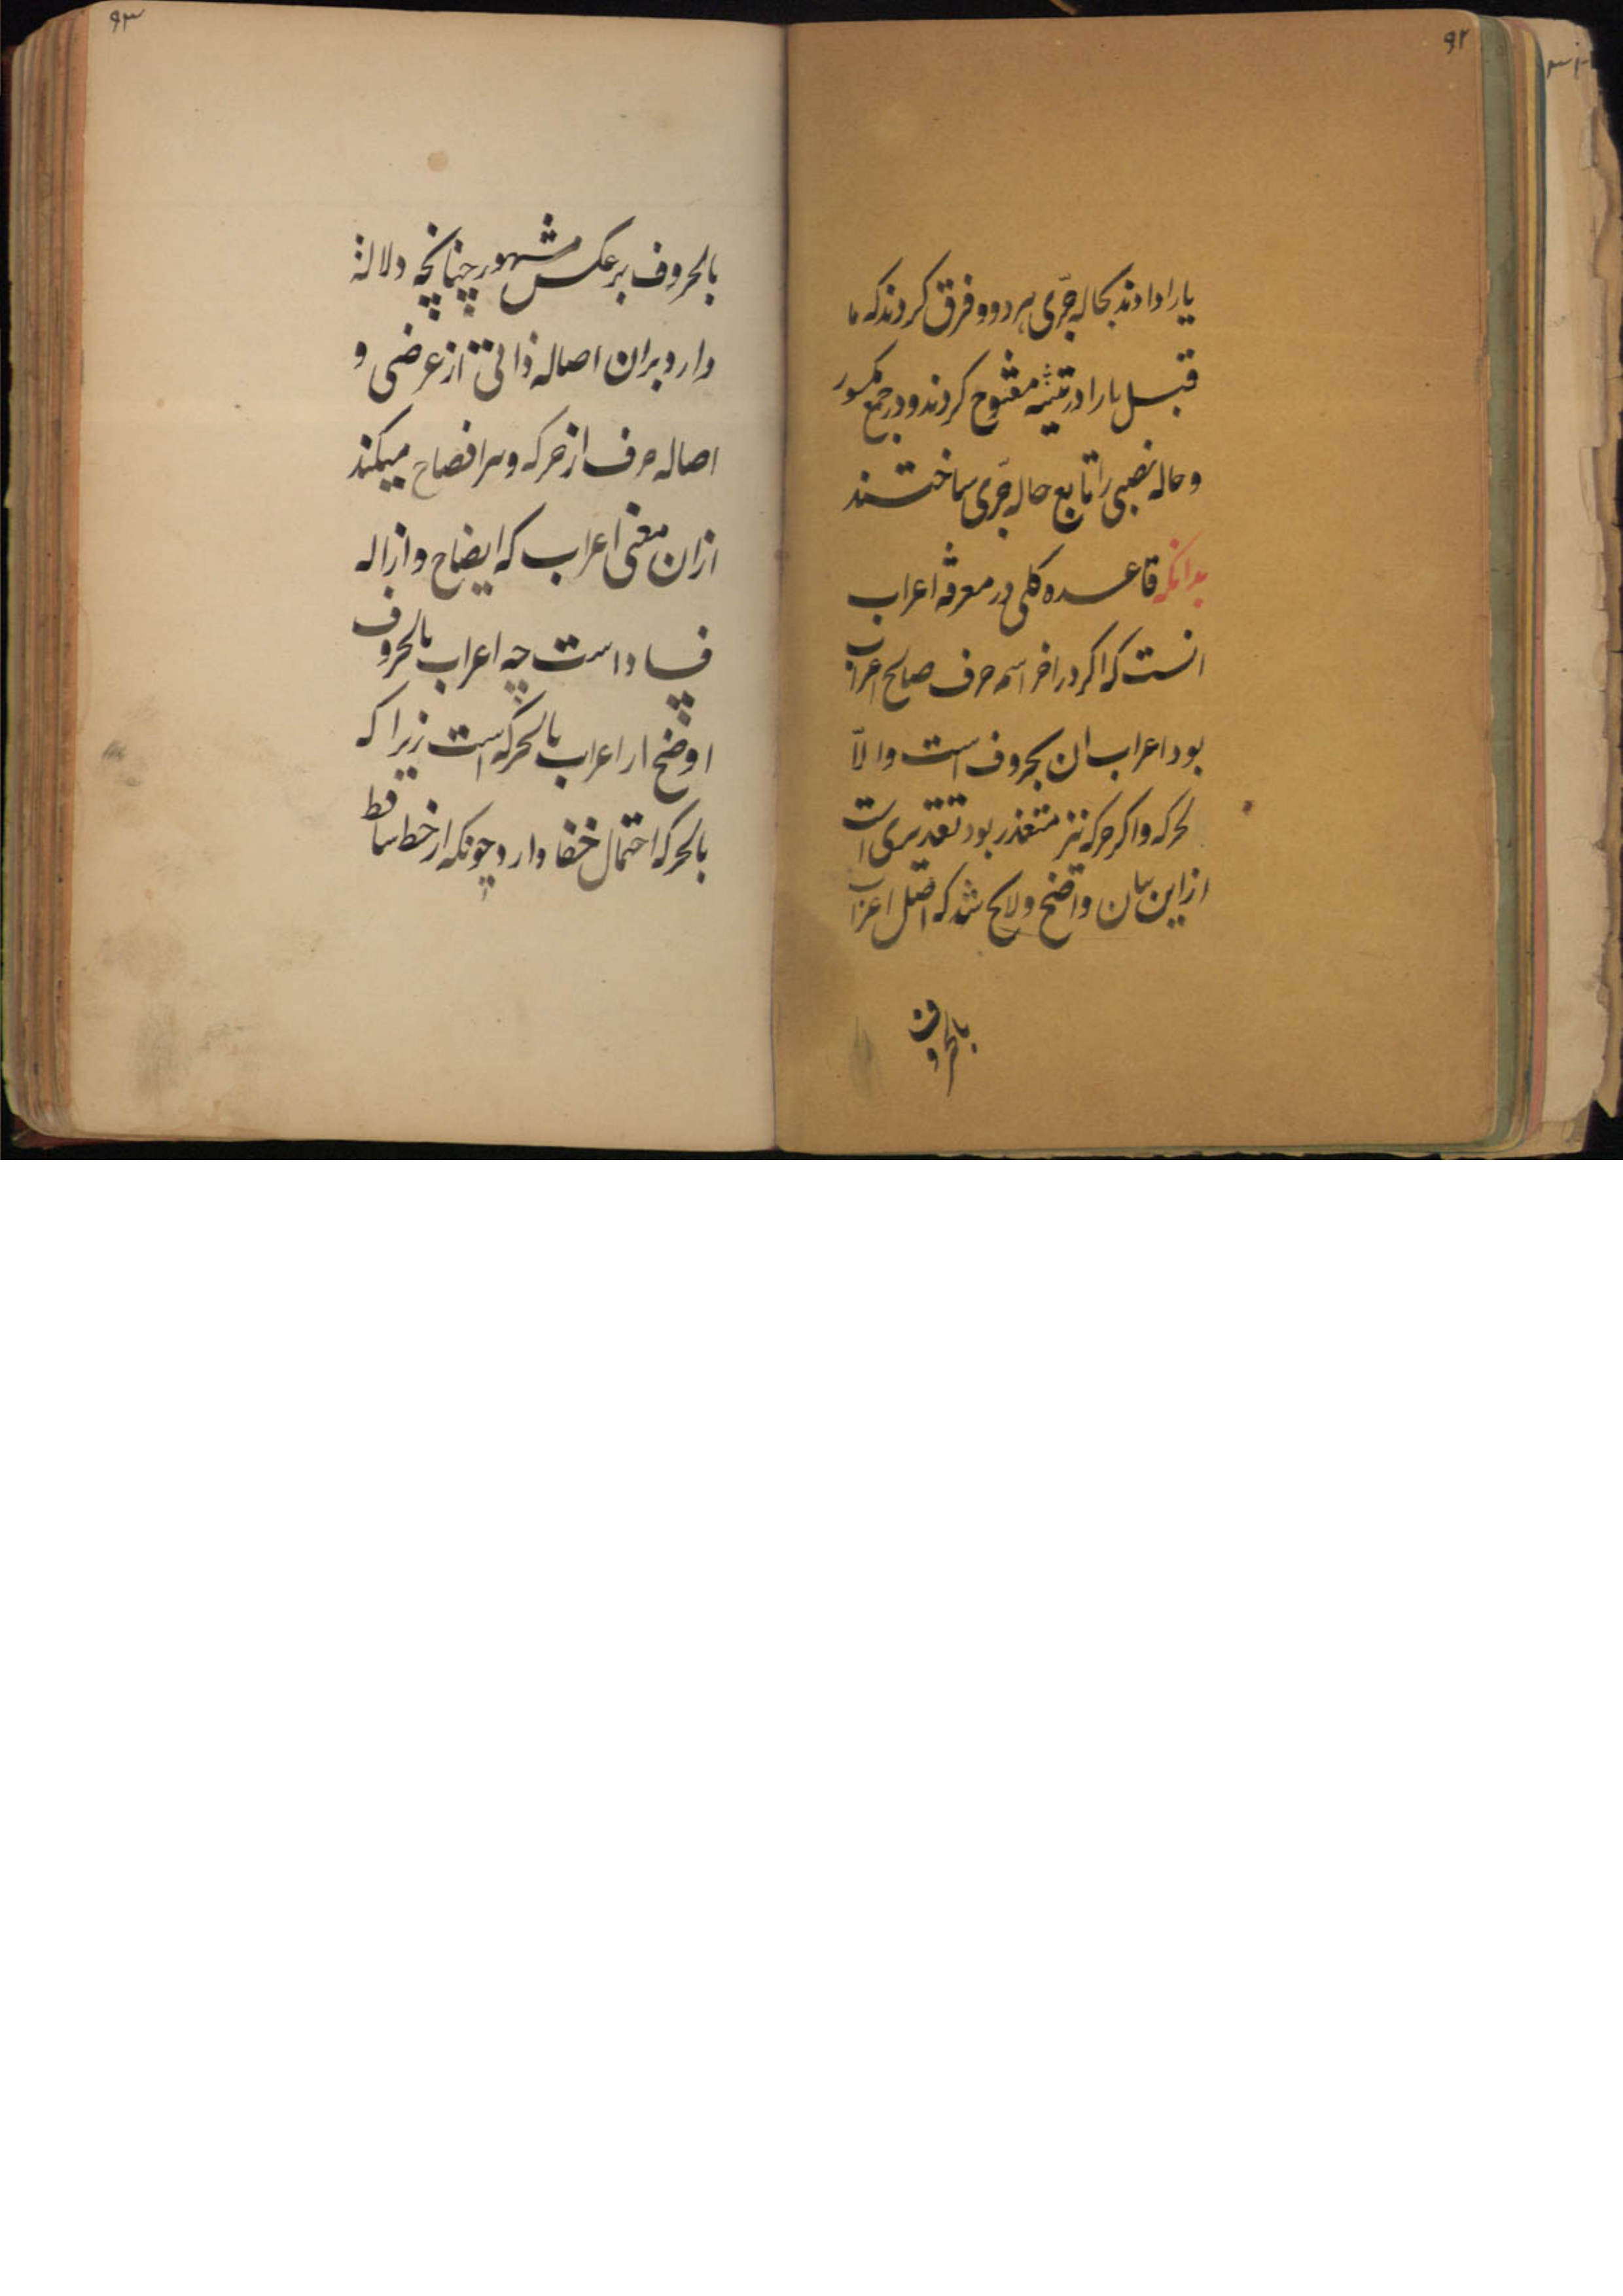 ۹۲
یا را دادند بحاله جرّی هر دو و فرق کردند که ما
قبل یا را در تثنیه مفتوح کردند و در جمع مکسور
و حاله نصبی را تابع حاله جرّی ساختند
بدانکه قاعده کلی در معرفه اعراب
انست که اکر در اخر اسم حرف صالح اعراب
بود اعراب ان بحروف است و الّا
بحرکه و اکر حرکه نیز متعذر بود تقدیری است
از این بیان واضح و لایح شد که اصل اعراب
بالحروف
۹۳
بالحروف بر عکس مشهور چنانچه دلالة
دارد بر ان اصاله ذاتی از عرضی و
اصاله حرف از حرکه و میکند
از ان معنی اعراب که ایضاح و ازاله
فساد است چه اعراب بالحروف
اوضح از اعراب بالحرکه است زیرا که
بالحرکه احتمال خفا دارد چونکه از خط ساقط